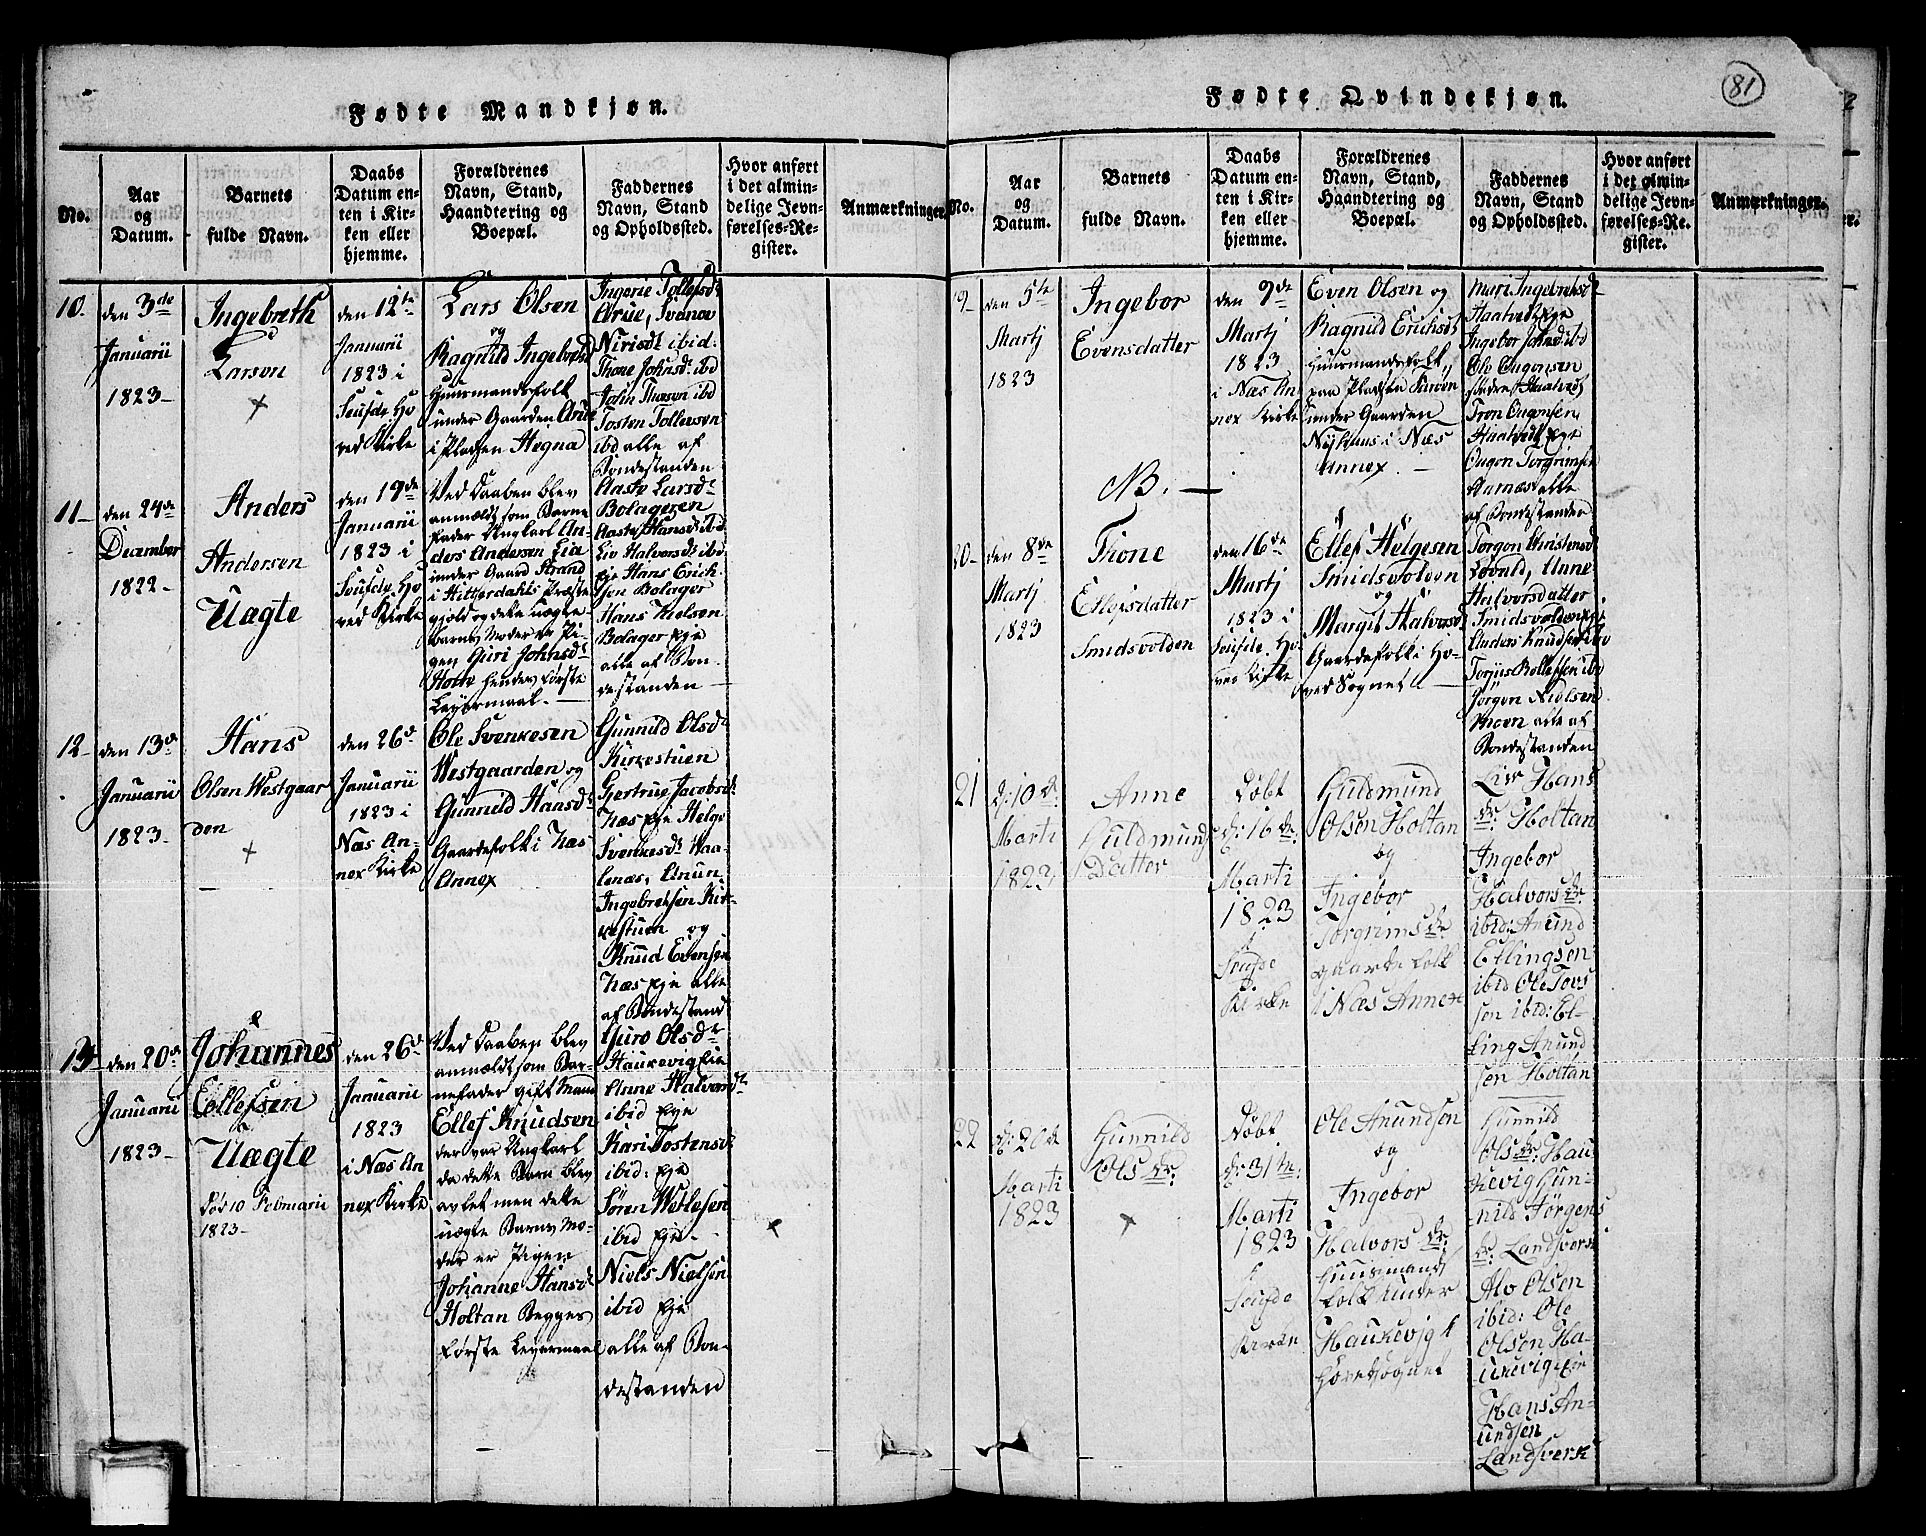 81
Fødte Mandkjøn.
No.
Aar
og
Datum.
Barnets
fulde Navn.
Daabs
Datum en-
ten i Kir-
ken eller
hjemme.
Forældrenes
Navn, Stand,
Haandtering og
Boepæl.
Faddernes
Navn, Stand
og Opholdssted.
Hvor anført
i det almin-
delige Jevn-
førelses-Re-
gister.
Anmærkninger.
10.
den 3de
Januarii
1823-
Ingebreth
Larson
+
den 12te
Januarii
1823 i
Soufde Ho
ved Kirke
Lars Olsen
og
Ragnild Ingebrehsd
Huusmandsfolk
under Gaarden Arue
i Pladsen Hegna
Ingerie Tollefsdr
Arue,
Nirisdt ibid:
Thone Johnsd: ibd
John ibd
Tosten Tollevsen
ibd alle af
Bondestanden
11-
den 24de
December
1822-
Anders
Andersen
Uægte
den 19de
Januarii
1823 i
Soufde Ho
ved Kirke
Ved Daaben blev
anmældt som Barne
fader Ungkarl An-
ders Andersen Lia
under Gaard Strand
i Hitterdahls Præste
gjeld og dette uægte
Barns Moder er Pi-
gen Guri Johnsdr
hendes første
Leyermaal. -
Aaste Larsdr
Bolageren
Aaste Hansdr ibd
Liv Halvorsdr ibd
Eje Hans Erich-
sen Bolager
Hans Nielsen
Bolager Eje
alle af Bon-
destanden -
12-
den 13de
Januarii
1823-
Hans
Olsen Westgaar
den
+
den 26de
Januarii
1823 i
Næs An-
nex Kirke
Ole Svenkesen
Westgaarden og
Gunneld Hansdr
Gaardefolk i Næs
Annex
Gunnild Olsdr
Kirkestuen
Gertrue Jacobsdr
Næs Eje Helge
Svenkesdr Haa-
tenæs, Anun-
Ingebrehsen Kir-
kestuen og
Knud Evensen
Næs Eje alle
af Bondestand
13
den 20de
Januarii
1823-
Johannes
Ellefsen
Uægte
Død 10 Februarii
1823-
den 26de
Januarii
1823
i Næs An
nex Kirke
Ved Daaben blev
anmældt som Bar-
nefader gift Mand
Ellef Knudsen
der var Ungkarl
da dette Barn blev
avlet men dette
uægte Barns Mo-
der er Pigen
Johanne Hansdr
Holtan Begges
første Leyermaal
Guro Olsdr
Haukevig Eie
Anne Halvorsdr
ibid Eje
Kari Tostensdr
ibid: Eje
Søren Wetlesen
ibid Eje -
Niels Nielsen
ibid Eje
alle af Bon-
destanden
+
Fødte Qvindekjøn.
No.
Aar
og
Datum.
Barnets
fulde Navn.
Daabs
Datum en-
ten i Kir-
ken eller
hjemme.
Forældrenes
Navn, Stand,
Haandtering og
Boepæl.
Faddernes
Navn, Stand
og Opholdssted.
Hvor anført
i det almin-
delige Jevn-
førelses-Re-
gister.
Anmærkninger.
19-
den 5te
Martj
1823
Ingebor
Evensdatter
NB. -
den 9de
Martj
1823
i Næs An
nex Kirke
Even Olsen og
Ragnild Erichsdr
Huusmandsfolk
paa Pladsen
under Gaarden
Nyhuus i Næs
Annex. -
Mari Ingebrehsdr
Haatvedt Eje
Ingebor Johnsd: ibd
Ole Ougonsen
Haatvedt
Tron Ougonsen
Haatvedt Eje
Ougon Torgrimsen
Aarnæs alle
af Bondestanden
20-
den 8de
Martj
1823
Thone
Ellefsdatter
Smidsvolden
den 16de
Martj
1823 i
Soufde. Ho-
ved Kirke
Ellef Helgesen
Smidsvolden
og
Margit Halvorsdr
Gaardefolk i Ho-
ved Sognet -
Torgon Christensdr
Lovald, Anne
Halvorsdatter
Smidsvolden Eje
Anders Knudsen ibd
Torjus Rollefsen ibd
Jørgon Nielsen
Moen alle af
Bondestanden
21
d: 10de
Marti
1823
Anne
Guldmunds
Datter
Døbt
d: 16de
Marti
1823
i
Soufde
Kirke
Guldmund
Olsen Holtan
og
Ingebor
Torgrimsdr
gaarde folk
i Næs Annex
Liv Hans
dr: Holtan
Ingebor
Halvorsdr:
ibid: Anund
Ellingsen
ibid Ole Tovs
sen ibid: El-
ling Anund
sen Holtan
22
d: 20de
Marti
1823
Gunnild
Olsdr:
+
Døbt
d: 31te:
Marti
1823
i
Soufde
Kirke
Ole Anundsen
og
Ingebor
Halvorsdr:
Huusmands
folk under
Haukevig i
Hovedsognet
Gunnild
Olsdr: Hau
kevig Gun-
nild Jørgens
dr: Landsverk
Alv Olsen
ibid: Ole
Olsen Ha-
ukevig Eje
Hans An-
undsen
Landsverk